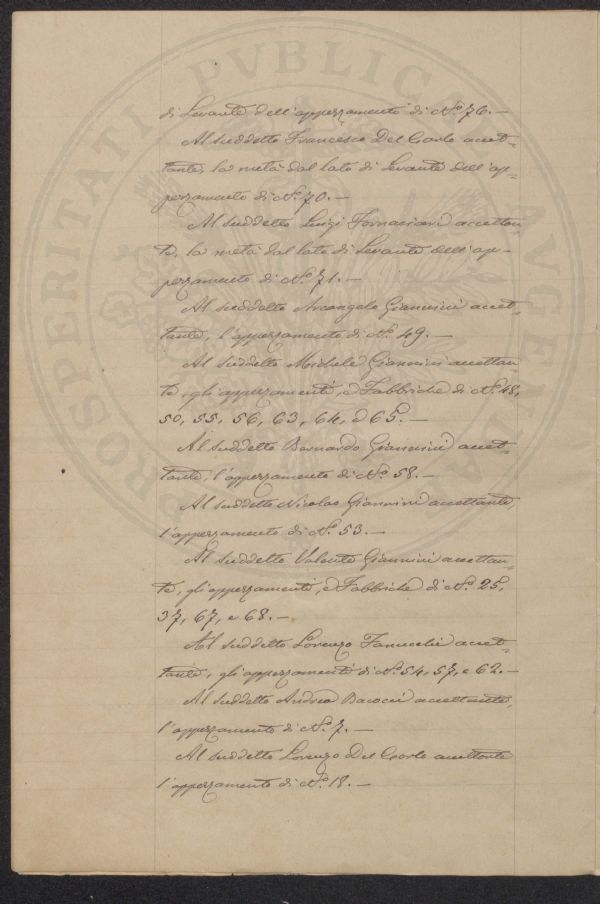 PROSPERITATI PVBLICAE AVGENDAE
di Levante dell'appezzamento di N.º 76.—
Al suddetto Francesco Del Carlo accet=
tante, la metà dal lato di Levante dell'ap=
pezzamento di N.º 70.—
Al suddetto Luigi Fornaciari accettan
te, la metà dal lato di Levante dell'ap=
pezzamento di N.º 71.—
Al suddetto Arcangelo Giannini accet=
tante, l'appezzamento di N.º 49.—
Al suddetto Michele Giannini accettan
te, gli appezzamenti, e Fabbriche di N.º 48,
50, 55, 56, 63, 64, e 65.—
Al suddetto Bernardo Giannini accet=
tante, l'appezzamento di N.º 58.—
Al suddetto Nicolao Giannini accettante
l'appezzamento di N.º 53.—
Al suddetto Valente Giannini accettan=
te, gli appezzamenti, e Fabbriche di N.º 25,
37, 67, e 68.—
Al suddetto Lorenzo Fanucchi accet=
tante, gli appezzamenti di N.º 54, 57, e 62.—
Al suddetto Andrea Bacocci accettante,
l'appezzamento di N.º 7.—
Al suddetto Lorenzo Del Carlo accettante
l'appezzamento di N.º 18.—